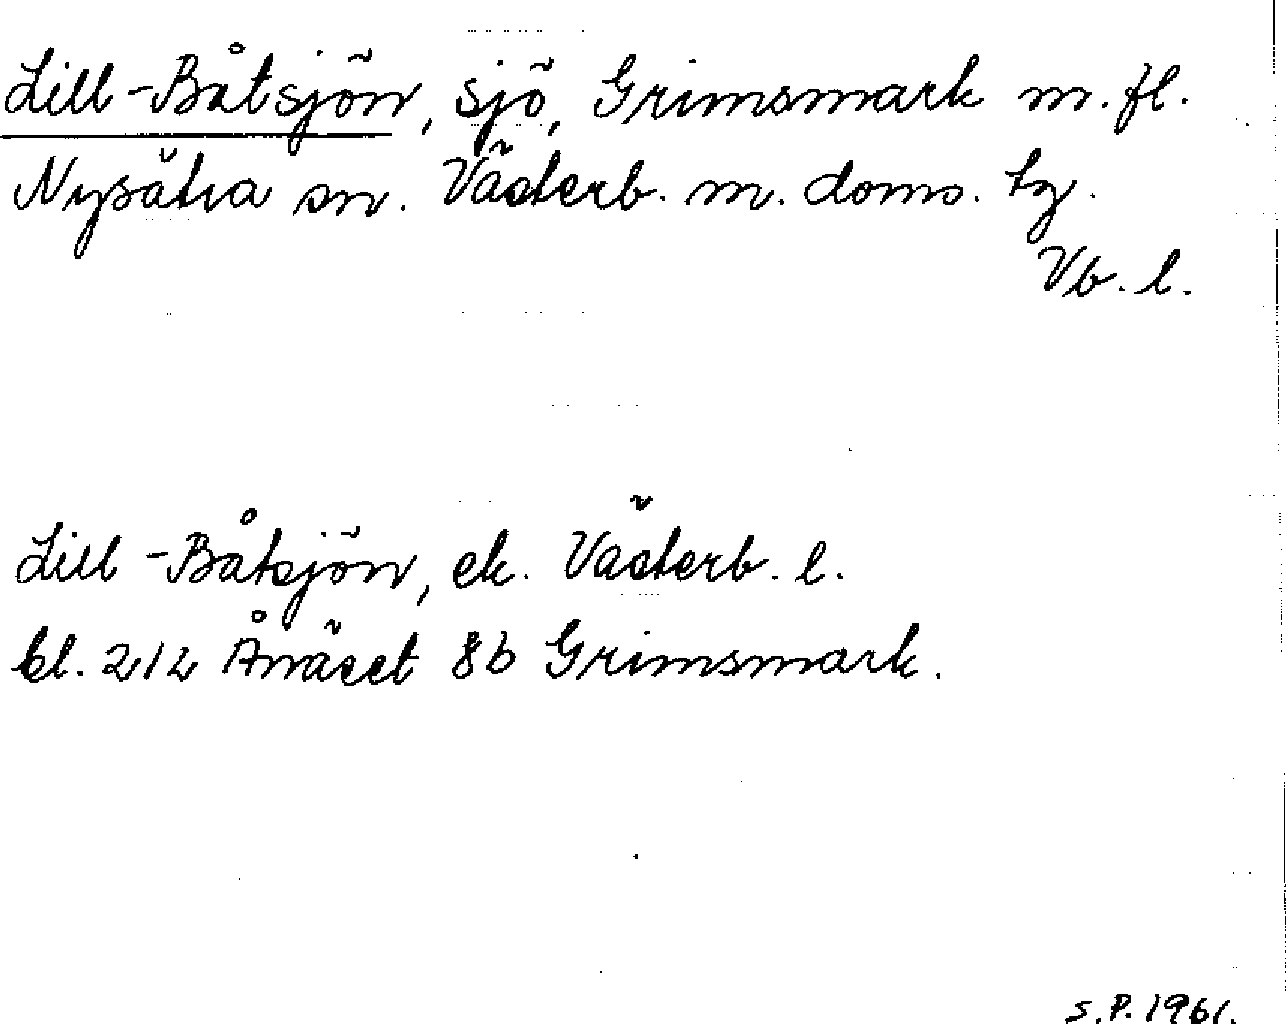 Lill-Båtsjön, sjö, Grimsmark m.fl.
Nysätra sn. Västerb. m. doms. tg.
Vb. l.
Lill-Båtsjön, ek. Västerb. l.
bl. 212 Ånäset 8b Grimsmark.
S.P. 1961.